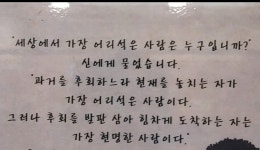 "세상에서 가장 어리석은 사람은 누구입니까?"
신에게 물었습니다.
"과거를 후회하느라 현재를 놓치는 자가
가장 어리석은 사람이다.
그러나 후회를 발판 삼아 힘차게 도착하는 자는
가장 현명한 사람이다."